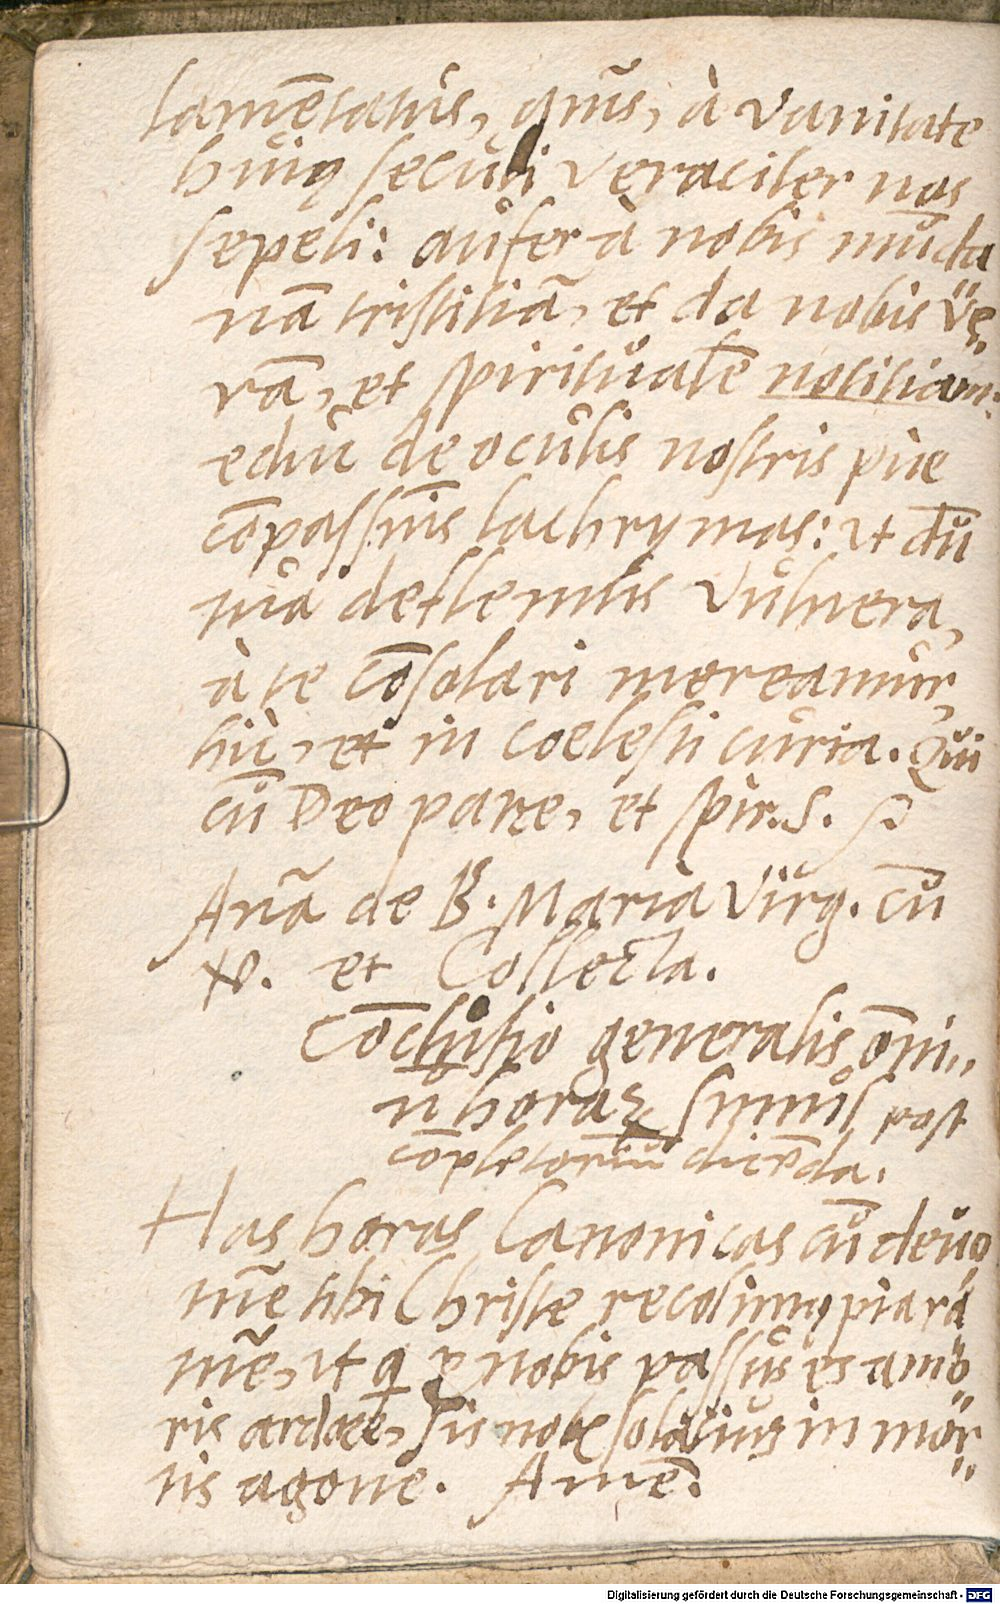 lamētatus, qm̄s, à vanitate
huiꝰ seculi veraciter nos
sepeli: aufer à nobis mūda
nā tristitiā, et da nobis ve„
rā, et spiritualē notitiam:
educ de oculis nostris piae
cōpassiōis lachrymas: ut dū
tua deflemus vulnera,
à te cōsolari mereamur,
hic, et in coelesti curia. Qui
cū Deo patre, et spir. S. P
Anā de B. Maria Virg. cū
V. et Collecta.
Cōclusio generalis ōni„
ū horaꝝ simul post
cōpletoriū dicēda.
Has horas Canonicas cū deuo
tiōe tibi Christe recolimꝰ pia ra
tiōe, ut q̄ ꝑ nobis passus es amo„
ris ardore, sis nobis solatiū in mor„
tis agone. Amē.
Digitalisierung gefördert durch die Deutsche Forschungsgemeinschaft - DFG